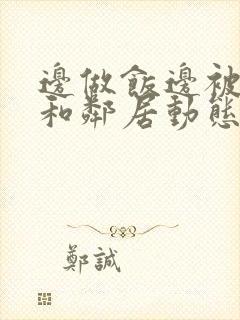 邊做飯邊被
和鄰居動態
鄭誠